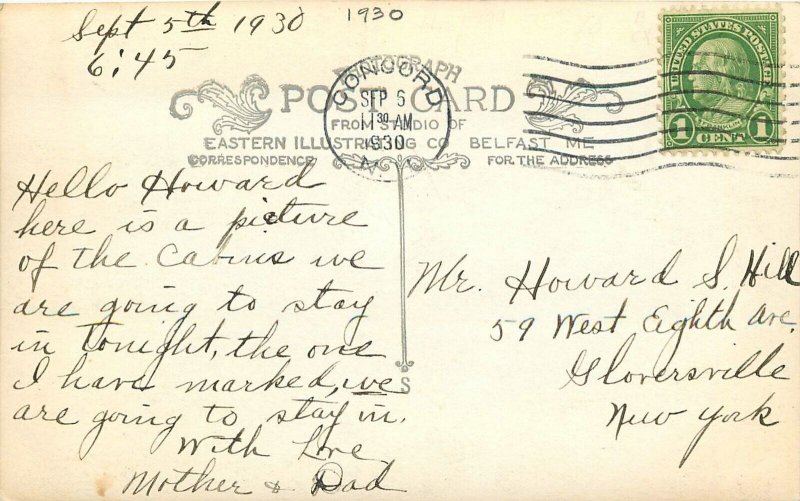 Sept 5th 1930
6:45
1930
PHOTOGRAPH
POST CARD
FROM STUDIO OF
EASTERN ILLUSTRATING CO BELFAST ME
CORRESPONDENCE
FOR THE ADDRESS
CONCORD
SEP 6
11 30 AM
1930
N.
UNITED STATES POSTAGE
1 CENT 1
Hello Howard
here is a picture
of the Cabins we
are going to stay
in tonight, the one
I have marked, we
are going to stay in.
With Love
Mother & Dad
Mr. Howard S. Hill
59 West Eighth Ave.
Gloversville
New York
S